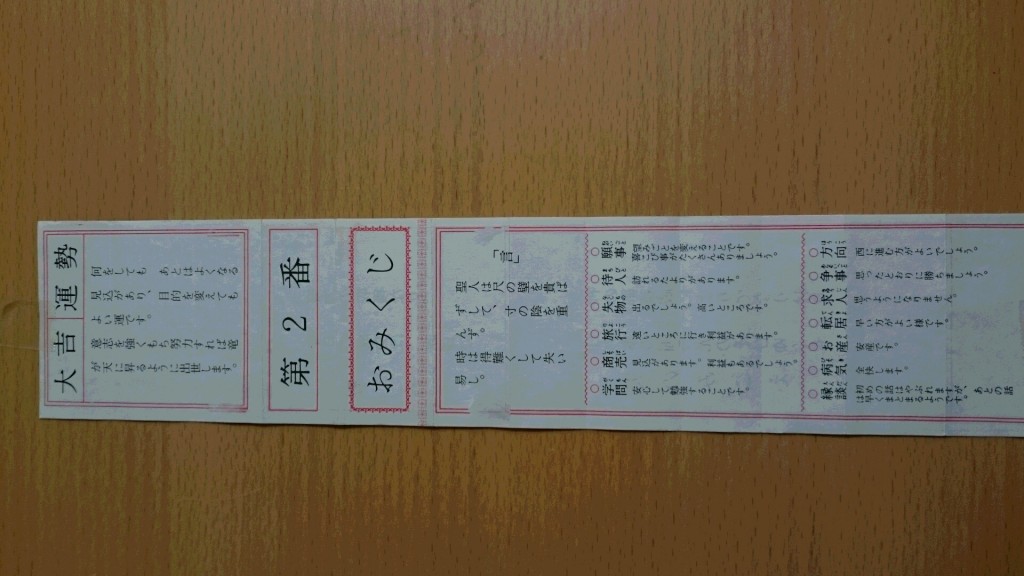 大吉 運勢
何をしても あとはよくなる
見込があり、目的を変えても
よい運です。
意志を強くもち努力すれば竜
が天に昇るように出世します。
第2番
おみくじ
「言」
聖人は尺の璧を貴ば
ずして、寸の陰を重
んず。
時は得難くして失い
易し。
○願事 望みごとを変えることです。
喜び事がたくさんありましょう。
○待人 訪れるたよりがあります。
○失物 出るでしょう。高いところです。
○旅行 遠いところに行き利益があります。
○商売 見込があります。利益もあるでしょう。
○学問 安心して勉強することです。
○方向 西に進む方がよいでしょう。
○争事 思ったとおりに勝ちましょう。
○求人 思うようになりません。
○転居 早い方がよい様です。
○お産 安産です。
○病気 全快します。
○縁談 初めの話はやぶれますが、あとの話
は早くまとまるようです。